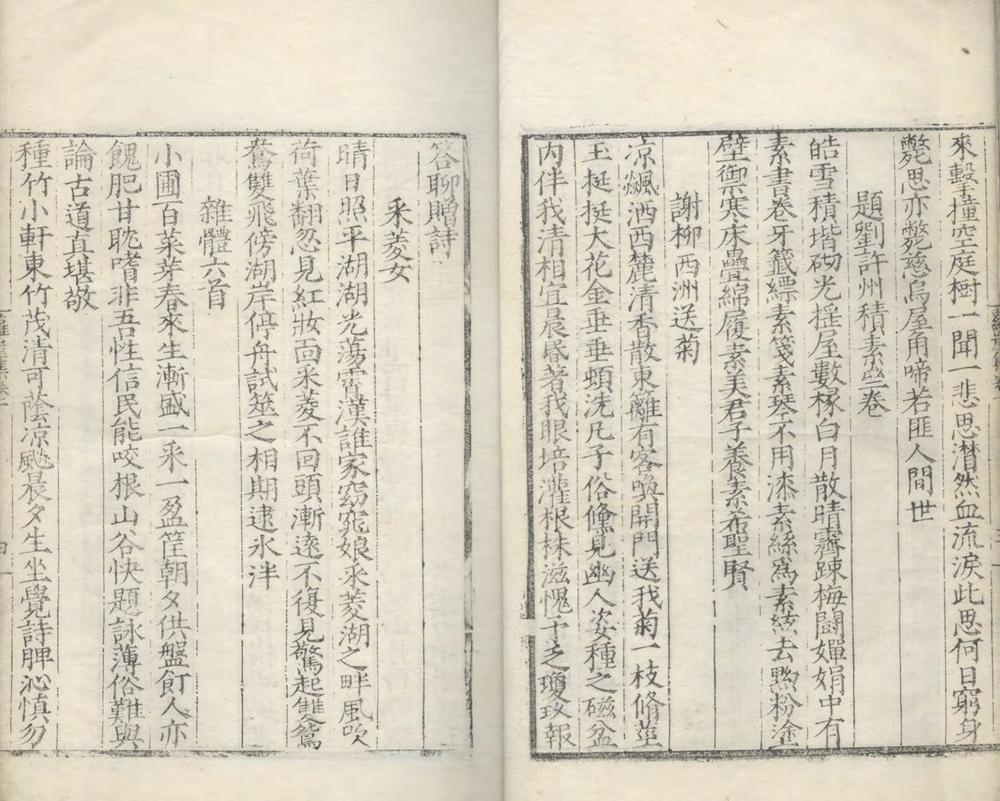 來擊撞空庭樹一聞一悲思潸然血流淚此思何日窮身
斃思亦斃慈烏屋角啼若匪人間世
題劉許州積素堂卷
皓雪積堦砌光搖屋數椽白月散晴霽踈梅鬪嬋娟中有
素書卷牙籤縹素箋素琴不用漆素絲爲素絃去煦粉塗
壁御寒床疊綿履素美君子養素希聖賢
謝柳西洲送菊
凉飊洒西麓清香散東籬有客喚開門送我菊一枝脩莖
玉挺挺大花金垂垂頓洗凡子俗儵見幽人姿種之磁盆
內伴我清相宜晨昏著我眼培灌根株滋愧予乏瓊玖報
答聊贈詩
采菱女
晴日照平湖湖光蕩霄漢誰家窈窕娘采菱湖之畔風吹
荷葉翻忽見紅妝面采菱不回頭漸遠不復見驚起雙鴛
鴦雙飛傍湖岸停舟試筮之相期逮氷泮
雜體六首
小圃百菜芽春來生漸盛一采一盈筐朝夕供盤飣人亦
餽肥甘耽嗜非吾性信民能咬根山谷快題詠薄俗難與
論古道直堪敬
種竹小軒東竹茂清可蔭凉颸晨夕生坐覺詩脾沁愼勿